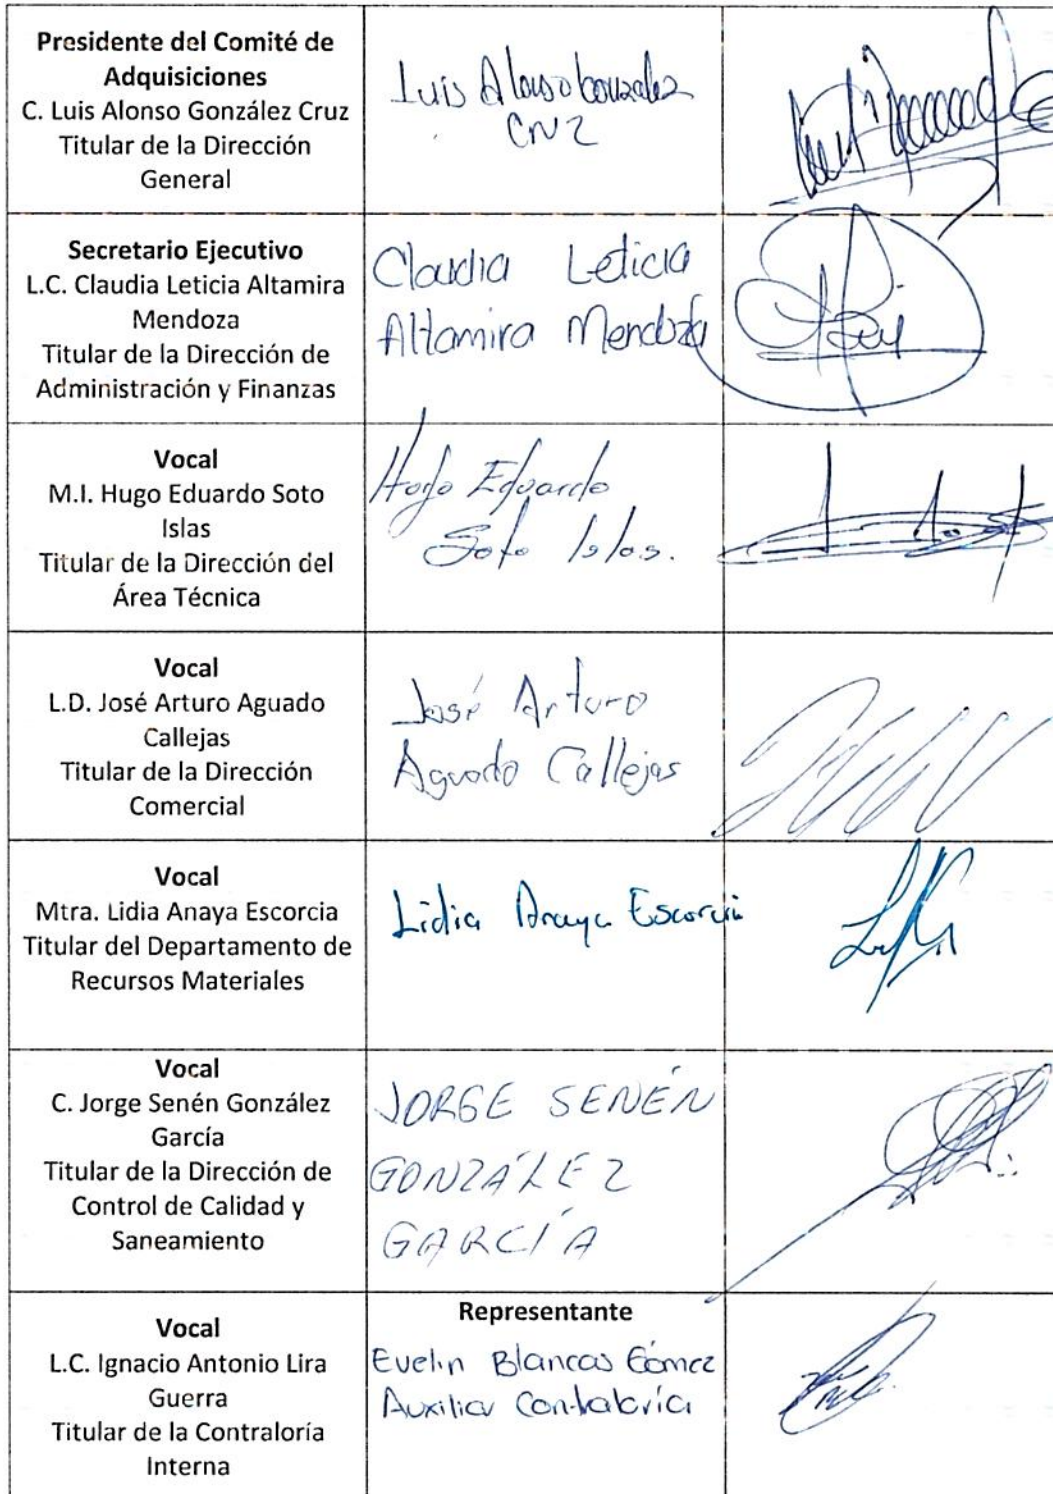 Presidente del Comité de
Adquisiciones
C. Luis Alonso González Cruz
Titular de la Dirección
General
Luis Alonso Gonzalez
Cruz
Secretario Ejecutivo
L.C. Claudia Leticia Altamira
Mendoza
Titular de la Dirección de
Administración y Finanzas
Claudia Leticia
Altamira Mendoza
Vocal
M.I. Hugo Eduardo Soto
Islas
Titular de la Dirección del
Área Técnica
Hugo Eduardo
Soto Islas.
Vocal
L.D. José Arturo Aguado
Callejas
Titular de la Dirección
Comercial
José Arturo
Aguado Callejas
Vocal
Mtra. Lidia Anaya Escorcia
Titular del Departamento de
Recursos Materiales
Lidia Anaya Escorcia
Vocal
C. Jorge Senén González
García
Titular de la Dirección de
Control de Calidad y
Saneamiento
JORGE SENÉN
GONZÁLEZ
GARCÍA
Vocal
L.C. Ignacio Antonio Lira
Guerra
Titular de la Contraloría
Interna
Representante
Evelin Blancas Gómez
Auxiliar Contraloría